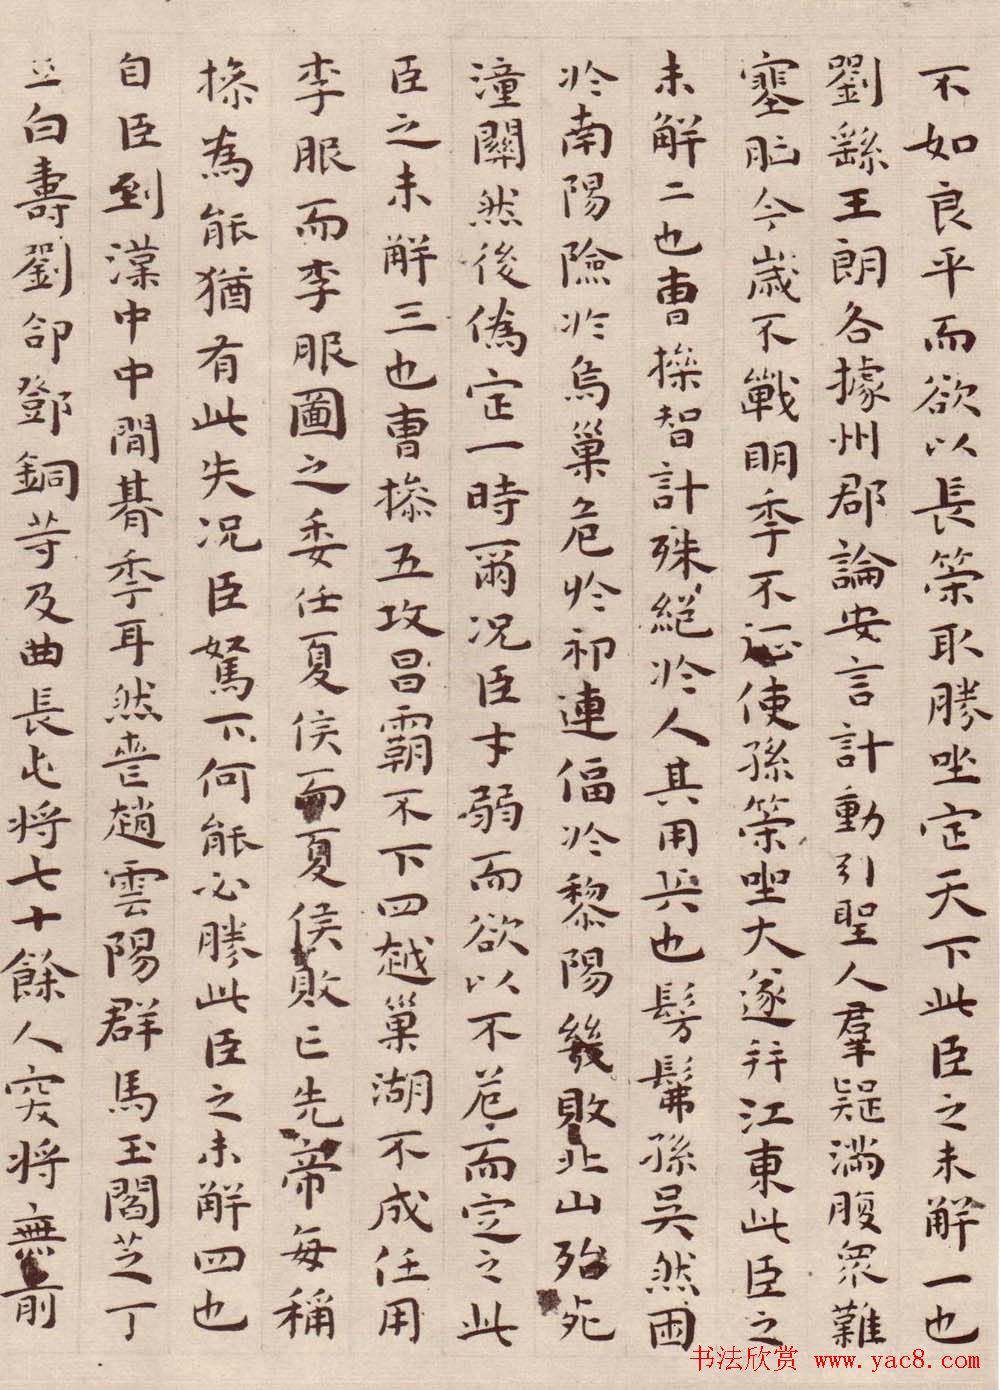 不如良平而欲以長策取勝坐定天下此臣之未解一也
劉繇王朗各據州郡論安言計動引聖人羣疑滿腹衆難
塞胸今歲不戰明年不征使孫策坐大遂并江東此臣之
未解二也曹操智計殊絕於人其用兵也髣髴孫吳然困
於南陽險於烏巢危於祁連偪於黎陽幾敗北山殆死
潼關然後偽定一時爾況臣才弱而欲以不危而定之此
臣之未解三也曹操五攻昌霸不下四越巢湖不成任用
李服而李服圖之委任夏侯而夏侯敗亡先帝每稱
操為能猶有此失況臣駑下何能必勝此臣之未解四也
自臣到漢中中間朞年耳然喪趙雲陽群馬玉閻芝丁
立白壽劉郃鄧銅等及曲長屯将七十餘人突将無前
书法欣赏 www.yac8.com